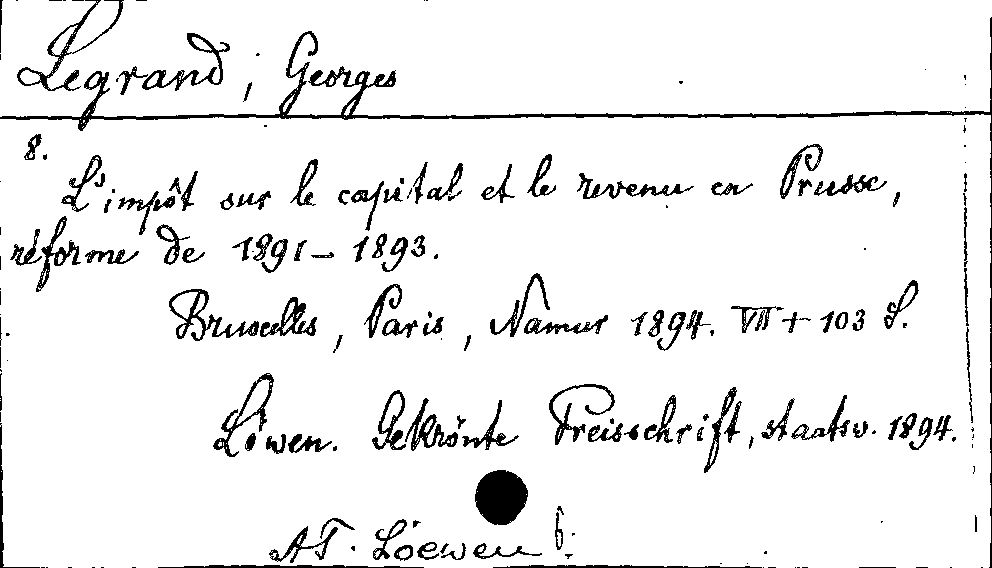 Legrand, Georges
8.
L'impôt sur le capital et le revenu en Prusse,
réforme de 1891-1893.
Bruxelles, Paris, Namur 1894. VII + 103 S.
Löwen. Gekrönte Preisschrift, staatsw. 1894.
AT. Löewen 6.